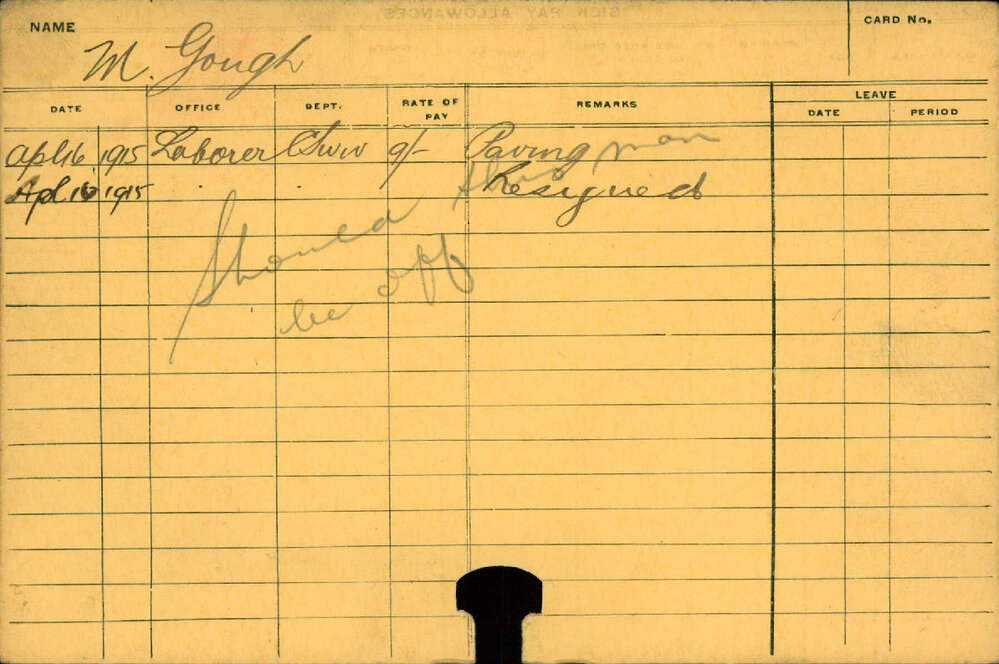 NAME
M. Gough
CARD No.
DATE OFFICE DEPT. RATE OF PAY REMARKS LEAVE DATE PERIOD
Apl 16 1915 Laborer 9/- Paving
Apl 16 1915 Resigned
Should this man
be off
SICK PAY ALLOWANCES